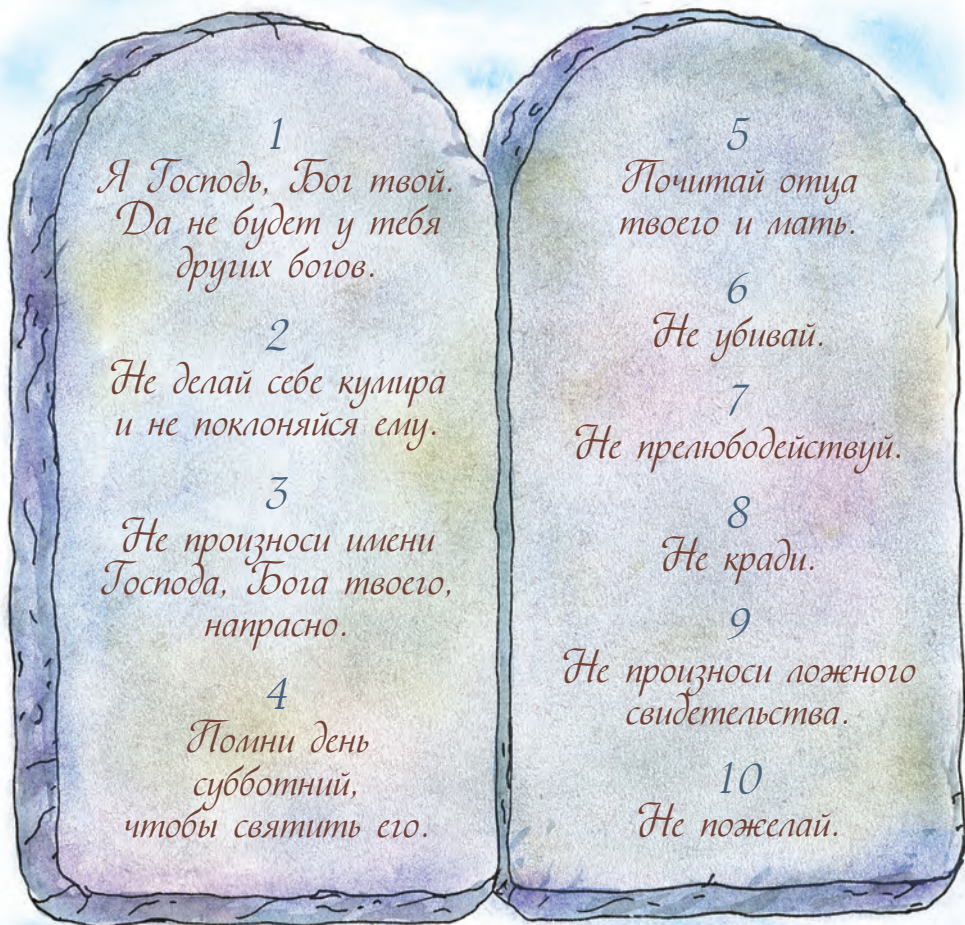 1
Я Господь, Бог твой.
Да не будет у тебя
других богов.
2
Не делай себе кумира
и не поклоняйся ему.
3
Не произноси имени
Господа, Бога твоего,
напрасно.
4
Помни день
субботний,
чтобы святить его.
5
Почитай отца
твоего и мать.
6
Не убивай.
7
Не прелюбодействуй.
8
Не кради.
9
Не произноси ложного
свидетельства.
10
Не пожелай.